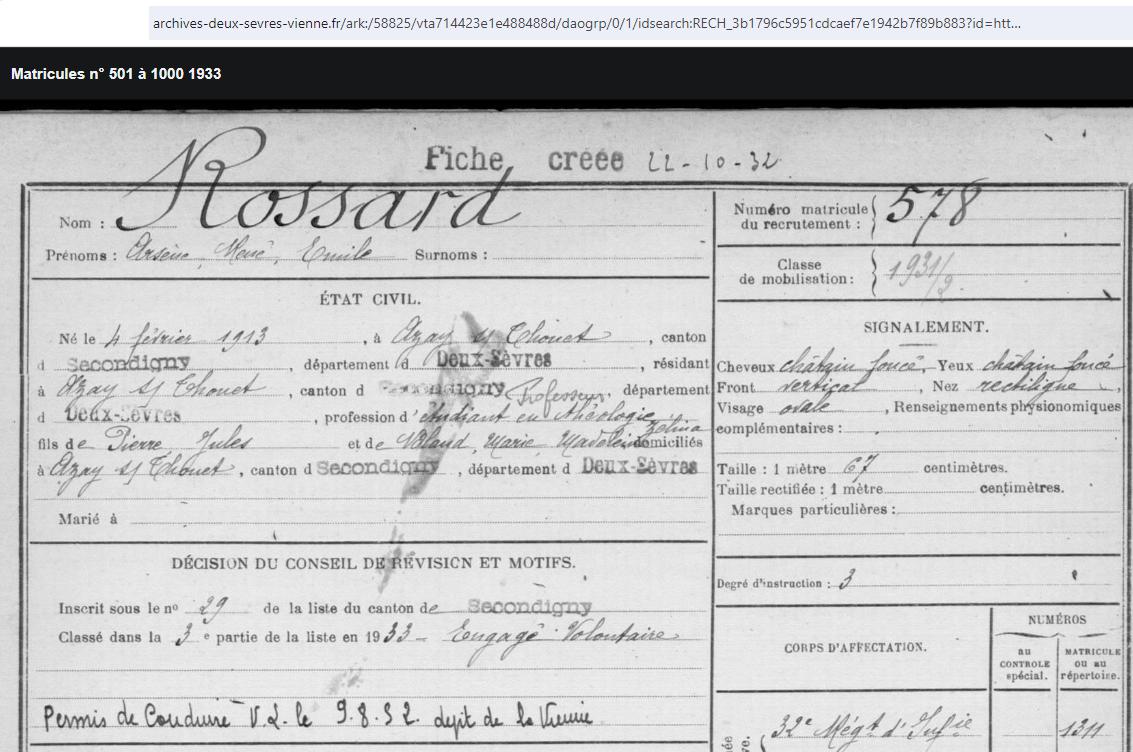 archives-deux-sevres-vienne.fr/ark:/58825/vta714423e1e488488d/daogrp/0/1/idsearch:RECH_3b1796c5951cdcaef7e1942b7f89b883?id=htt...
Matricules n° 501 à 1000 1933
Fiche créée 22-10-32
Nom : Rossard
Prénoms : Arsène, René, Emile Surnoms :
Numéro matricule du recrutement : 578
Classe de mobilisation : 1931/2
ÉTAT CIVIL.
Né le 4 février 1913, à Azay s/ Thouet, canton
d Secondigny, département d Deux-Sèvres, résidant
à Azay s/ Thouet, canton d Secondigny, département
Professeur
d Deux-Sèvres, profession d'étudiant en théologie
fils de Pierre Jules et de Marie, Madeleine Zélina domiciliés
à Azay s/ Thouet, canton d Secondigny, département d Deux-Sèvres
Marié à
SIGNALEMENT.
Cheveux châtain foncé, Yeux châtain foncé
Front vertical, Nez rectiligne,
Visage ovale, Renseignements physionomiques
complémentaires :
Taille : 1 mètre 67 centimètres.
Taille rectifiée : 1 mètre centimètres.
Marques particulières :
Degré d'instruction : 3
DÉCISION DU CONSEIL DE RÉVISION ET MOTIFS.
Inscrit sous le n° 29 de la liste du canton de Secondigny
Classé dans la 3e partie de la liste en 1933 - Engagé Volontaire
Permis de Conduire V.L. le 9.8.32. dept de la Vienne
CORPS D'AFFECTATION.
NUMÉROS
au CONTROLE spécial.
MATRICULE ou au répertoire.
32e Régt d'Infie
1311